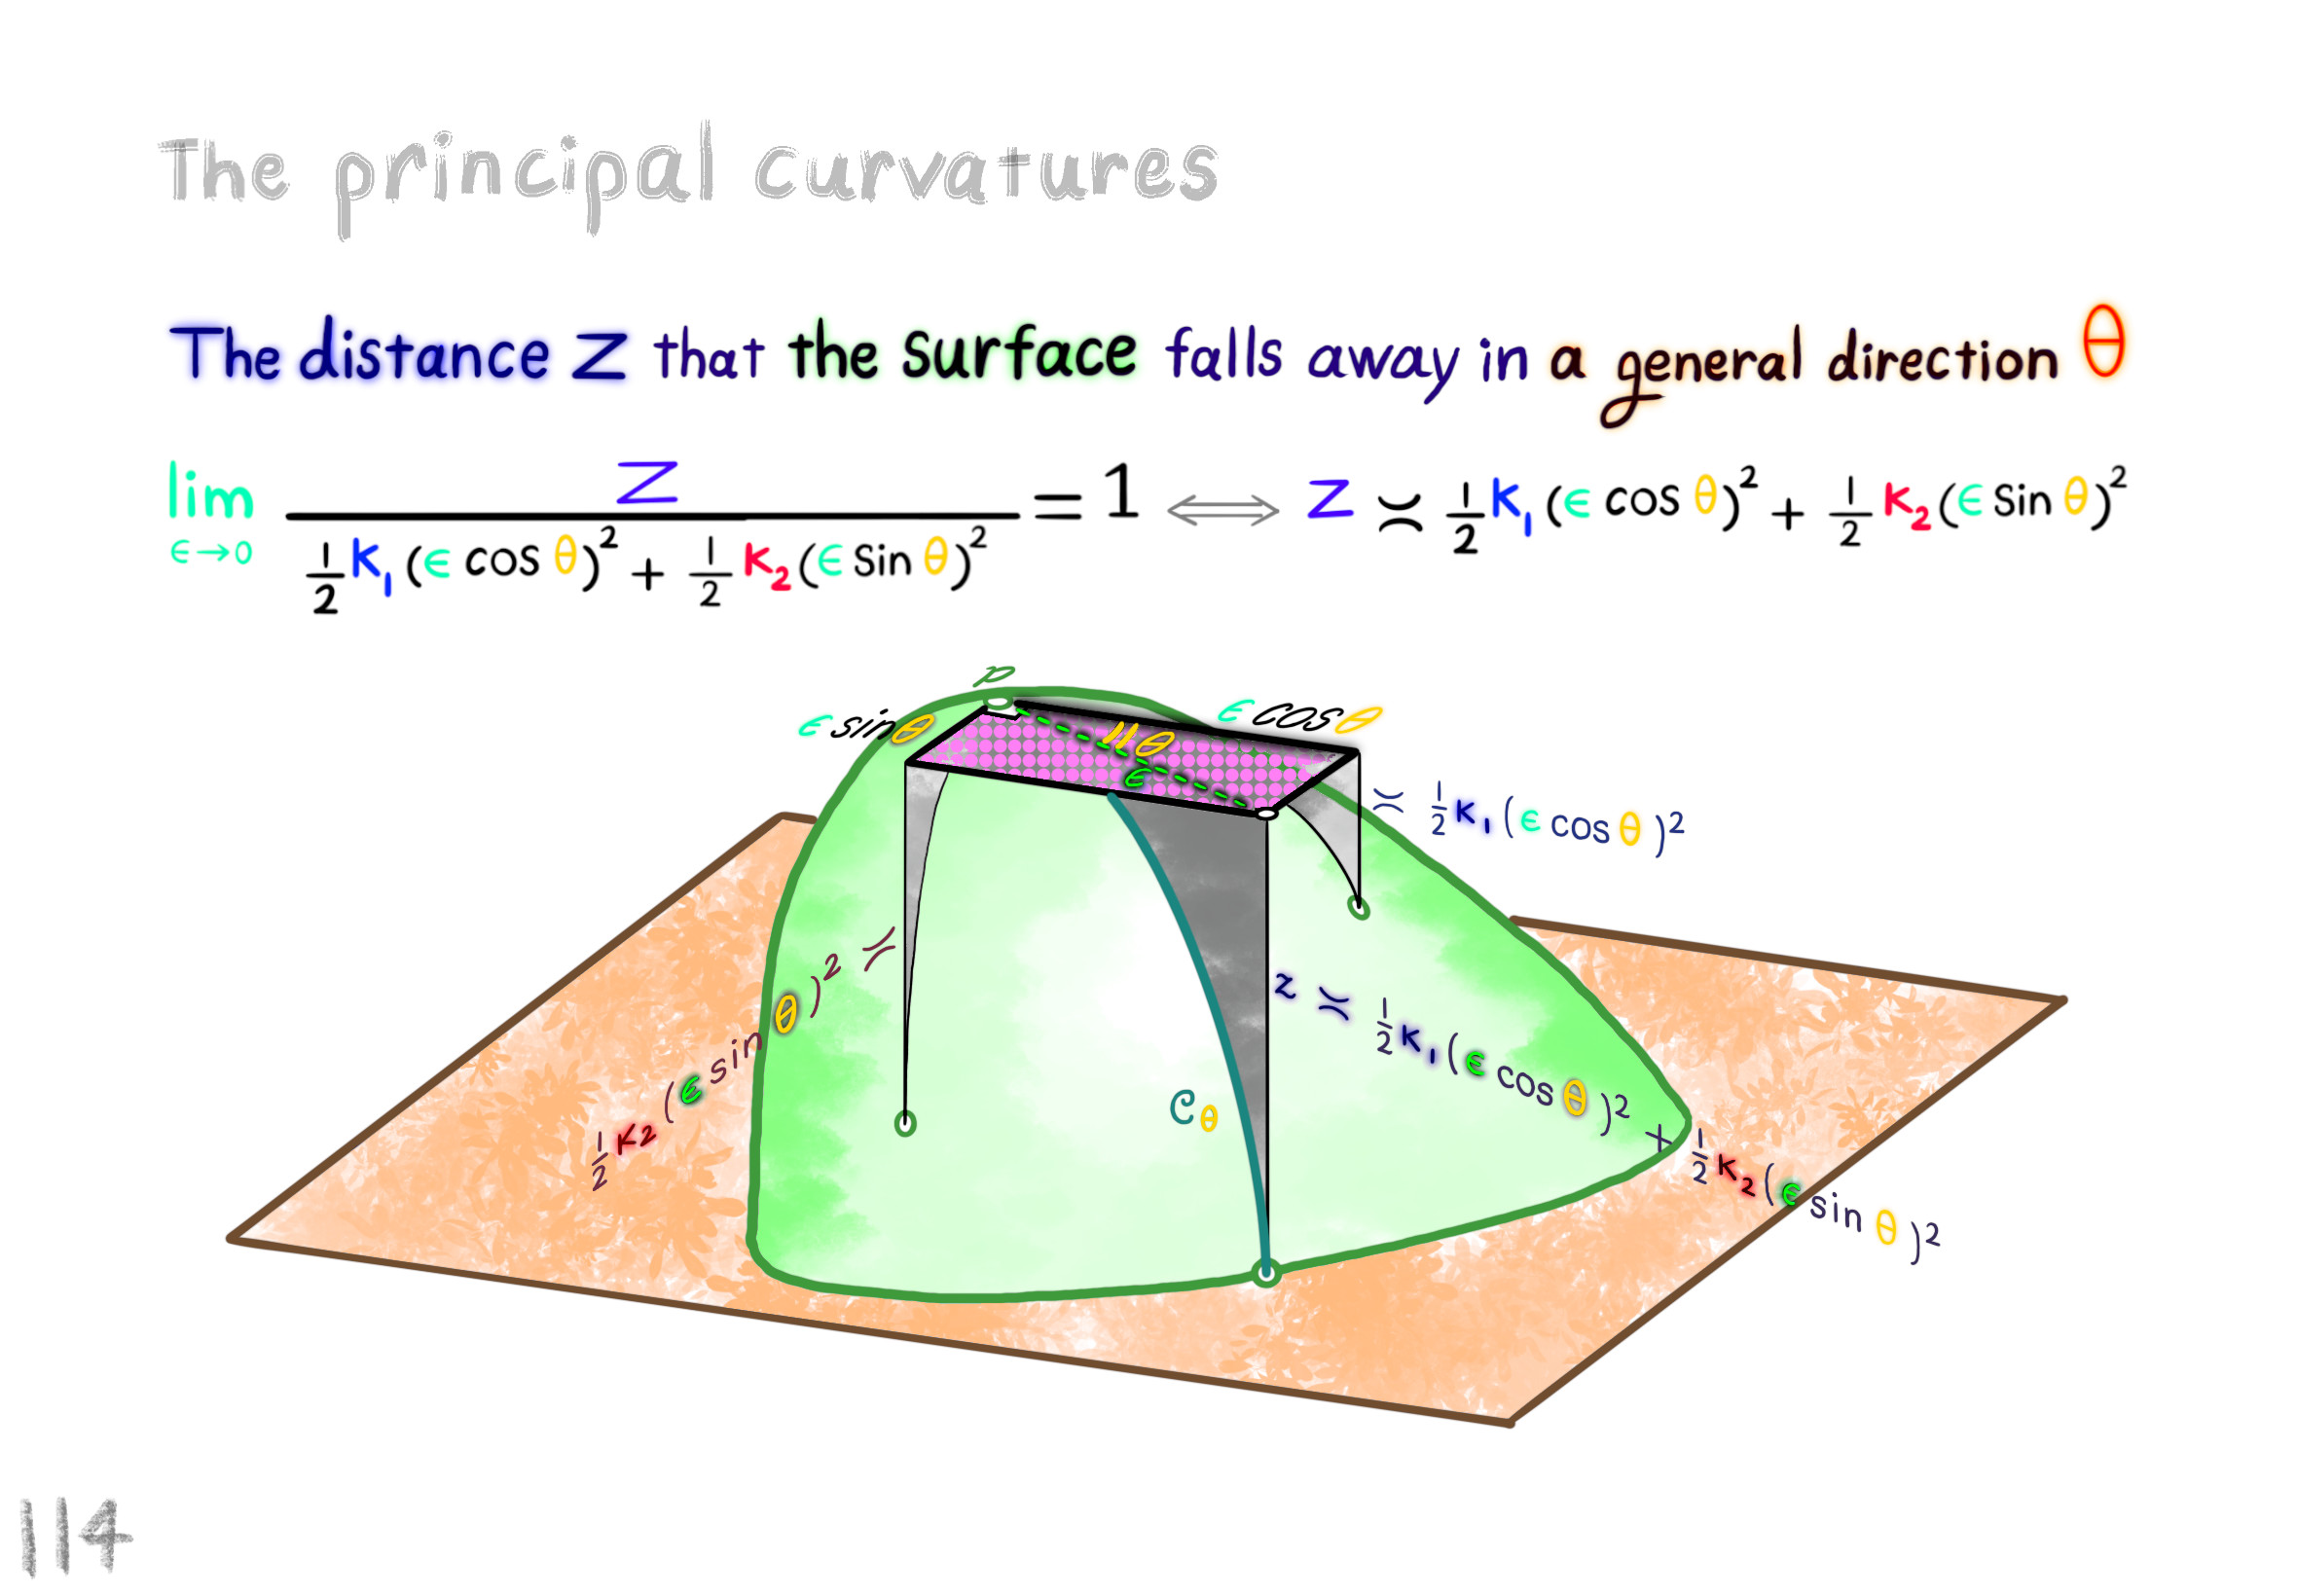 The principal curvatures
The distance z that the surface falls away in a general direction θ
lim ϵ→0 z / (½ κ₁ (ϵ cos θ)² + ½ κ₂ (ϵ sin θ)²) = 1 ⟺ z ≍ ½ κ₁ (ϵ cos θ)² + ½ κ₂ (ϵ sin θ)²
p
ϵ sin θ
ϵ cos θ
θ
ϵ
≍ ½ κ₁ (ϵ cos θ)²
½ κ₂ (ϵ sin θ)² ≍
z ≍ ½ κ₁ (ϵ cos θ)² + ½ κ₂ (ϵ sin θ)²
C θ
114